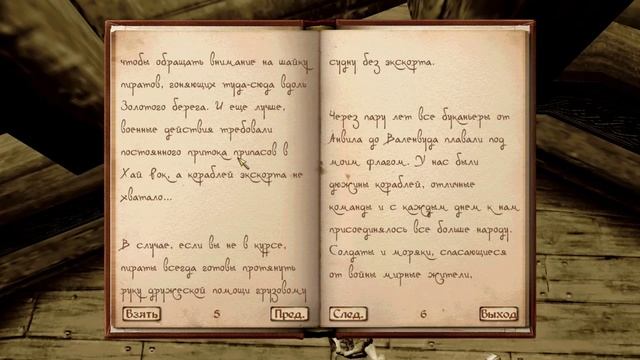 чтобы обращать внимание на шайку
пиратов, гоняющих туда-сюда вдоль
Золотого берега. И еще лучше,
военные действия требовали
постоянного притока припасов в
Хай Рок, а кораблей экскорта не
хватало...
В случае, если вы не в курсе,
пираты всегда готовы протянуть
руку дружеской помощи грузовому
Взять
5
Пред.
судну без экскорта.
Через пару лет все буканьеры от
Анвила до Валенвуда плавали под
моим флагом. У нас были
дюжины кораблей, отличные
команды и с каждым днем к нам
присоединялось все больше народу.
Солдаты и моряки, спасающиеся
от войны мирные жители,
След.
6
Выход